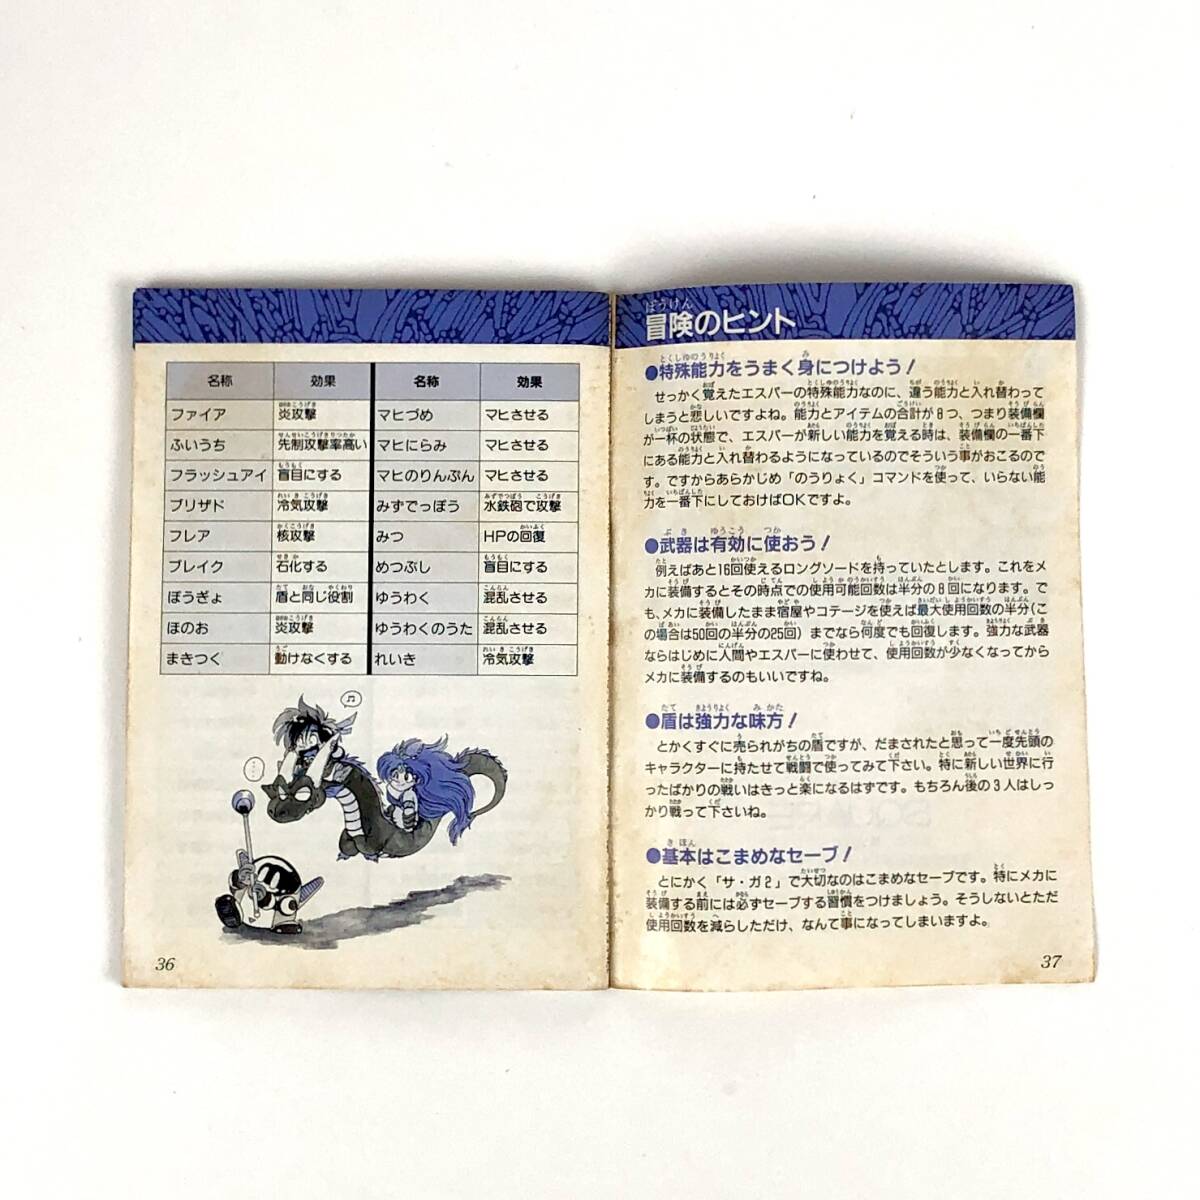 名称 効果 名称 効果
ファイア 炎攻撃 マヒづめ マヒさせる
ふいうち 先制攻撃率高い マヒにらみ マヒさせる
フラッシュアイ 盲目にする マヒのりんぷん マヒさせる
ブリザド 冷気攻撃 みずでっぽう 水鉄砲で攻撃
フレア 核攻撃 みつ HPの回復
ブレイク 石化する めつぶし 盲目にする
ぼうぎょ 盾と同じ役割 ゆうわく 混乱させる
ほのお 炎攻撃 ゆうわくのうた 混乱させる
まきつく 動けなくする れいき 冷気攻撃
36
冒険のヒント
●特殊能力をうまく身につけよう！
せっかく覚えたエスパーの特殊能力なのに、違う能力と入れ替わって
しまうと悲しいですよね。能力とアイテムの合計が8つ、つまり装備欄
が一杯の状態で、エスパーが新しい能力を覚える時は、装備欄の一番下
にある能力と入れ替わるようになっているのでそういう事がおこるので
す。ですからあらかじめ「のうりょく」コマンドを使って、いらない能
力を一番下にしておけばOKですよ。
●武器は有効に使おう！
例えばあと16回使えるロングソードを持っていたとします。これをメ
カに装備するとその時点での使用可能回数は半分の8回になります。で
も、メカに装備したまま宿屋やコテージを使えば最大使用回数の半分(こ
の場合は50回の半分の25回) までなら何度でも回復します。強力な武器
ならはじめに人間やエスパーに使わせて、使用回数が少なくなってから
メカに装備するのもいいですね。
●盾は強力な味方！
とかくすぐに売られがちの盾ですが、だまされたと思って一度先頭の
キャラクターに持たせて戦闘で使ってみて下さい。特に新しい世界に行
ったばかりの戦いはきっと楽になるはずです。もちろん後の3人はしっ
かり戦って下さいね。
●基本はこまめなセーブ！
とにかく「サ・ガ2」で大切なのはこまめなセーブです。特にメカに
装備する前には必ずセーブする習慣をつけましょう。そうしないとただ
使用回数を減らしただけ、なんて事になってしまいますよ。
37